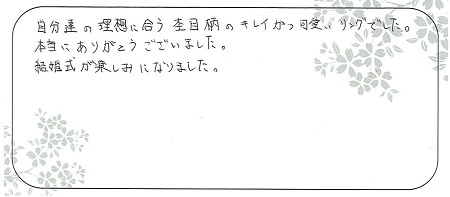 自分達の理想に合う杢目柄のキレイかつ可愛いリングでした。
本当にありがとうございました。
結婚式が楽しみになりました。